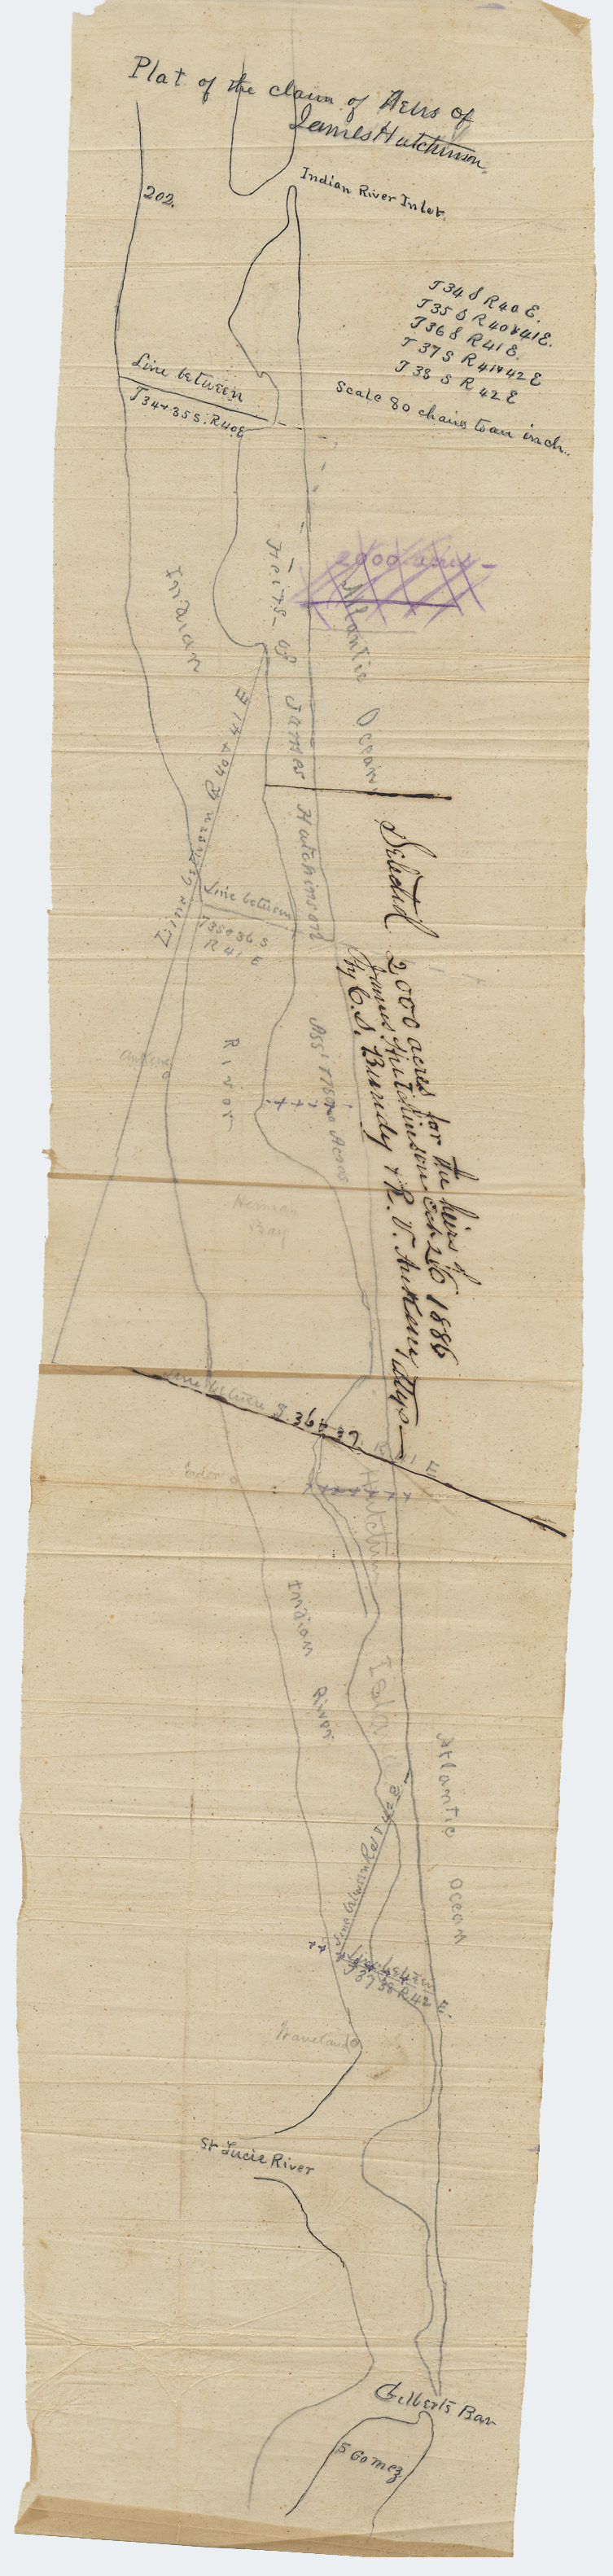 Plat of the claim of Heirs of
James Hutchinson.
Indian River Inlet.
202.
T34 S R40 E.
T35 S R40&41E.
T36 S R41 E.
T37 S R41&42 E
T38 S R42 E
Scale 80 chains to an inch..
Line between
T34+35 S. R40E
2000 acres
Indian
Heirs of James Hutchinson
Atlantic Ocean
Line between R 40 + 41 E
Line between
T35+36 S
R 41 E
Selected 2000 acres for the heirs of
James Hutchinson Oct 26 1886
By C.S. Bundy & R. V. Ankeny Attys
River
Acres
Ankona
Herman
Bay
Line between T. 36 & 37. R 41 E
Eden
Hutchin
Island
Indian
River
Atlantic Ocean
Line between R 41 & 42 E
Line between
T37 38 R 42 E.
Waveland
St Lucie River
Gilberts Bar
S Gomez